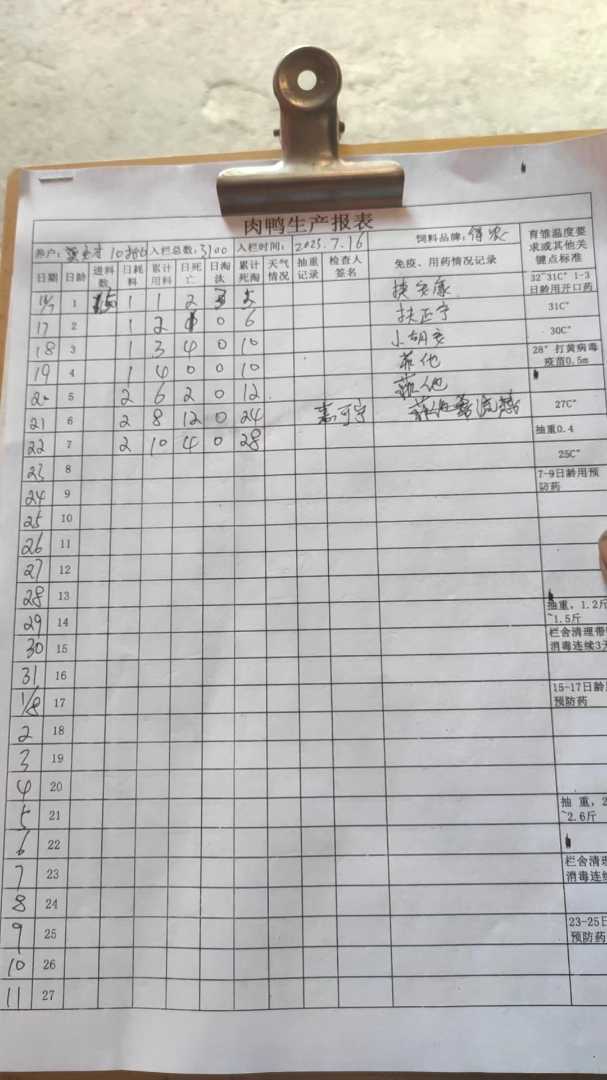 肉鸭生产报表
养户: 入栏总数:3100 入栏时间:2025.7.16 饲料品牌:得农 育雏温度要求或其他关键点标准
日期 日龄 进料数 日耗料 累计用料 日死亡 日淘汰 累计死淘 天气情况 抽重记录 检查人签名 免疫、用药情况记录
1 1 1 2 3 5 32~31C° 1-3日龄用开口药
17 2 1 2 0 6 扶正宁 31C°
18 3 1 3 4 0 10 30C°
19 4 1 4 0 0 10 28° 打黄病毒疫苗0.5m
20 5 2 6 2 0 12
21 6 2 8 12 0 24 27C°
22 7 2 10 4 0 28 抽重0.4
23 8 25C°
24 9 7-9日龄用预防药
25 10
26 11
27 12
28 13
29 14 抽重,1.2斤~1.5斤
30 15 栏舍清理带 消毒连续3天
31 16
1/8 17 15-17日龄 预防药
2 18
3 19
4 20
5 21 抽重,2 ~2.6斤
6 22
7 23 栏舍清理 消毒连续
8 24
9 25 23-25日 预防药
10 26
11 27